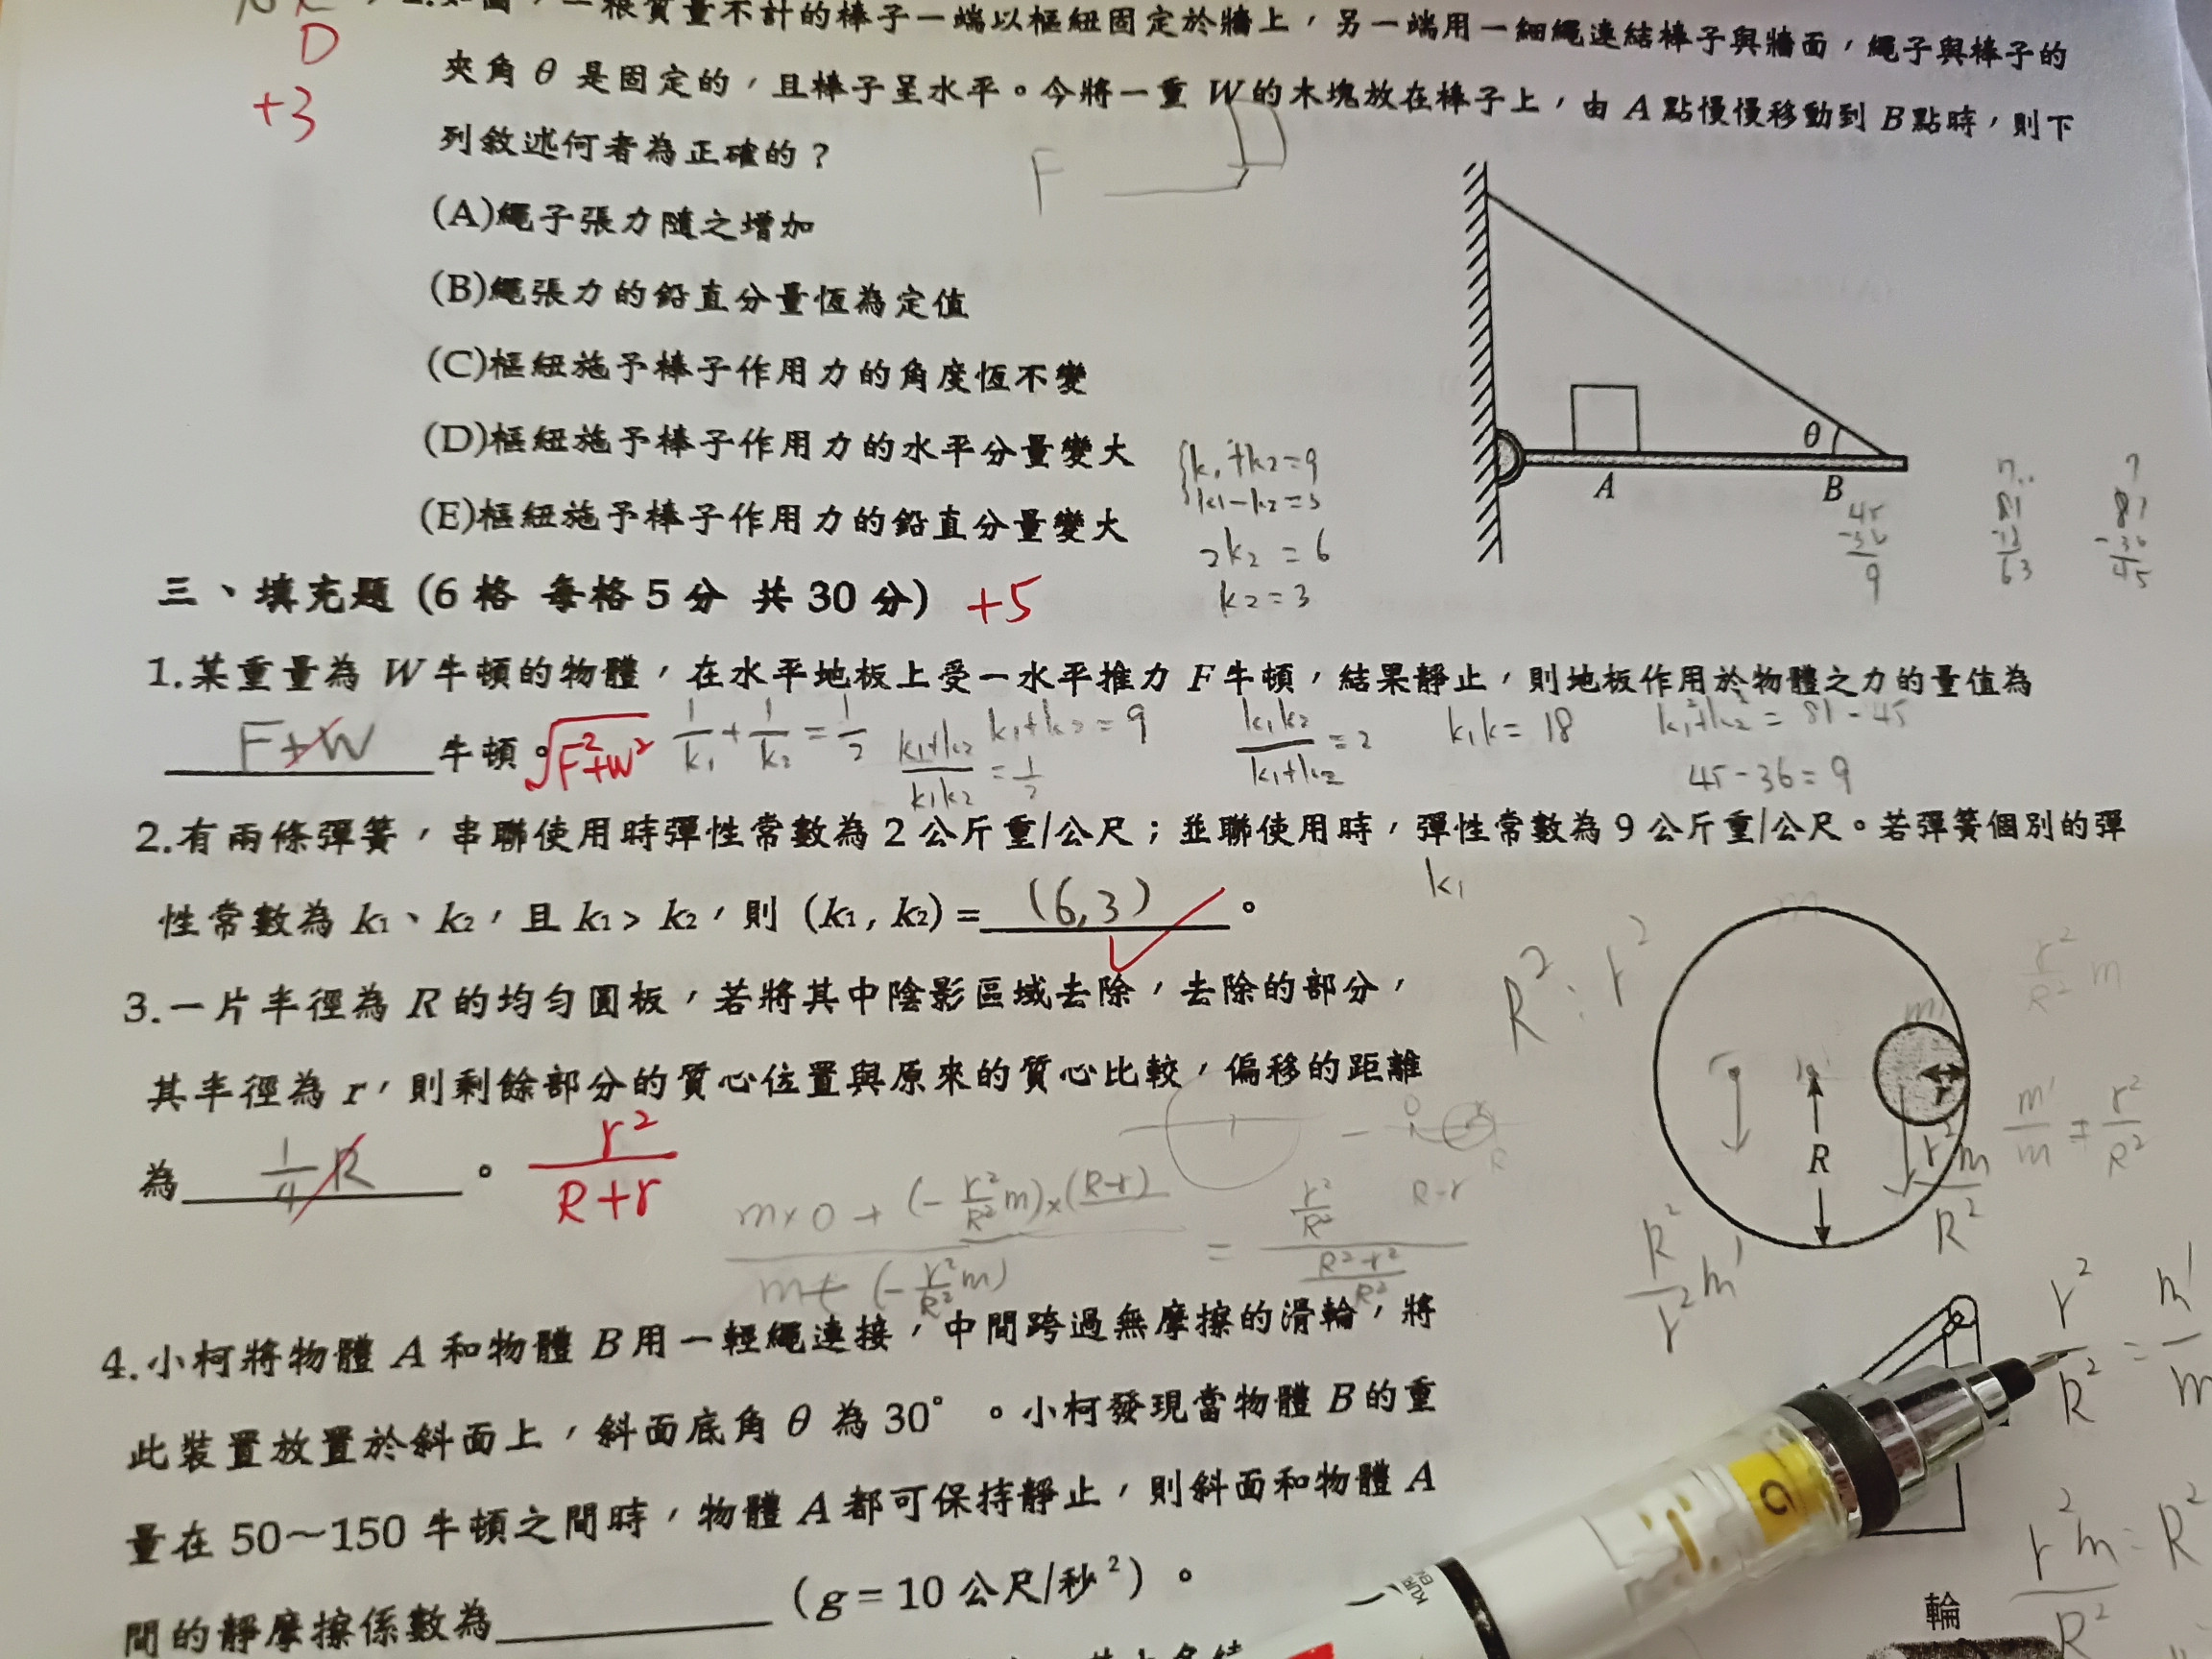 D
+3
如圖，一根質量不計的棒子一端以樞紐固定於牆上，另一端用一細繩連結棒子與牆面，繩子與棒子的
夾角 θ 是固定的，且棒子呈水平。今將一重 W 的木塊放在棒子上，由 A 點慢慢移動到 B 點時，則下
列敘述何者為正確的？
F
(A)繩子張力隨之增加
(B)繩張力的鉛直分量恆為定值
(C)樞紐施予棒子作用力的角度恆不變
(D)樞紐施予棒子作用力的水平分量變大
(E)樞紐施予棒子作用力的鉛直分量變大
θ
A
B
k₁+k₂=9
k₁-k₂=3
2k₂=6
k₂=3
45
-36
9
63
45
三、填充題 (6 格 每格 5 分 共 30 分)
+5
1.某重量為 W 牛頓的物體，在水平地板上受一水平推力 F 牛頓，結果靜止，則地板作用於物體之力的量值為
F+W 牛頓。
√F²+W²
1/k₁ + 1/k₂ = 1/2
k₁+k₂/k₁k₂ = 1/2
k₁+k₂=9
k₁k₂/k₁+k₂ = 2
k₁k=18
k₁²+k₂²=81-45
45-36=9
2.有兩條彈簧，串聯使用時彈性常數為 2 公斤重/公尺；並聯使用時，彈性常數為 9 公斤重/公尺。若彈簧個別的彈
k₁
性常數為 k₁、k₂，且 k₁ > k₂，則 (k₁, k₂) = (6,3) 。
3.一片半徑為 R 的均勻圓板，若將其中陰影區域去除，去除的部分，
其半徑為 r，則剩餘部分的質心位置與原來的質心比較，偏移的距離
為 1/4 R 。
r²/R+r
m×0+(-r²/R² m)×(R-r)
m+(-r²/R² m)
= r²/R² / R²-r²/R²
R-r
R²:r²
m
r²/R² m
m'
r
R
m'/m = r²/R²
r²m/R²
R²/r² m'
r²/R² = m'/m
r²m/R² = R²
4.小柯將物體 A 和物體 B 用一輕繩連接，中間跨過無摩擦的滑輪，將
此裝置放置於斜面上，斜面底角 θ 為 30° 。小柯發現當物體 B 的重
量在 50～150 牛頓之間時，物體 A 都可保持靜止，則斜面和物體 A
間的靜摩擦係數為 （g = 10 公尺/秒²）。
輪